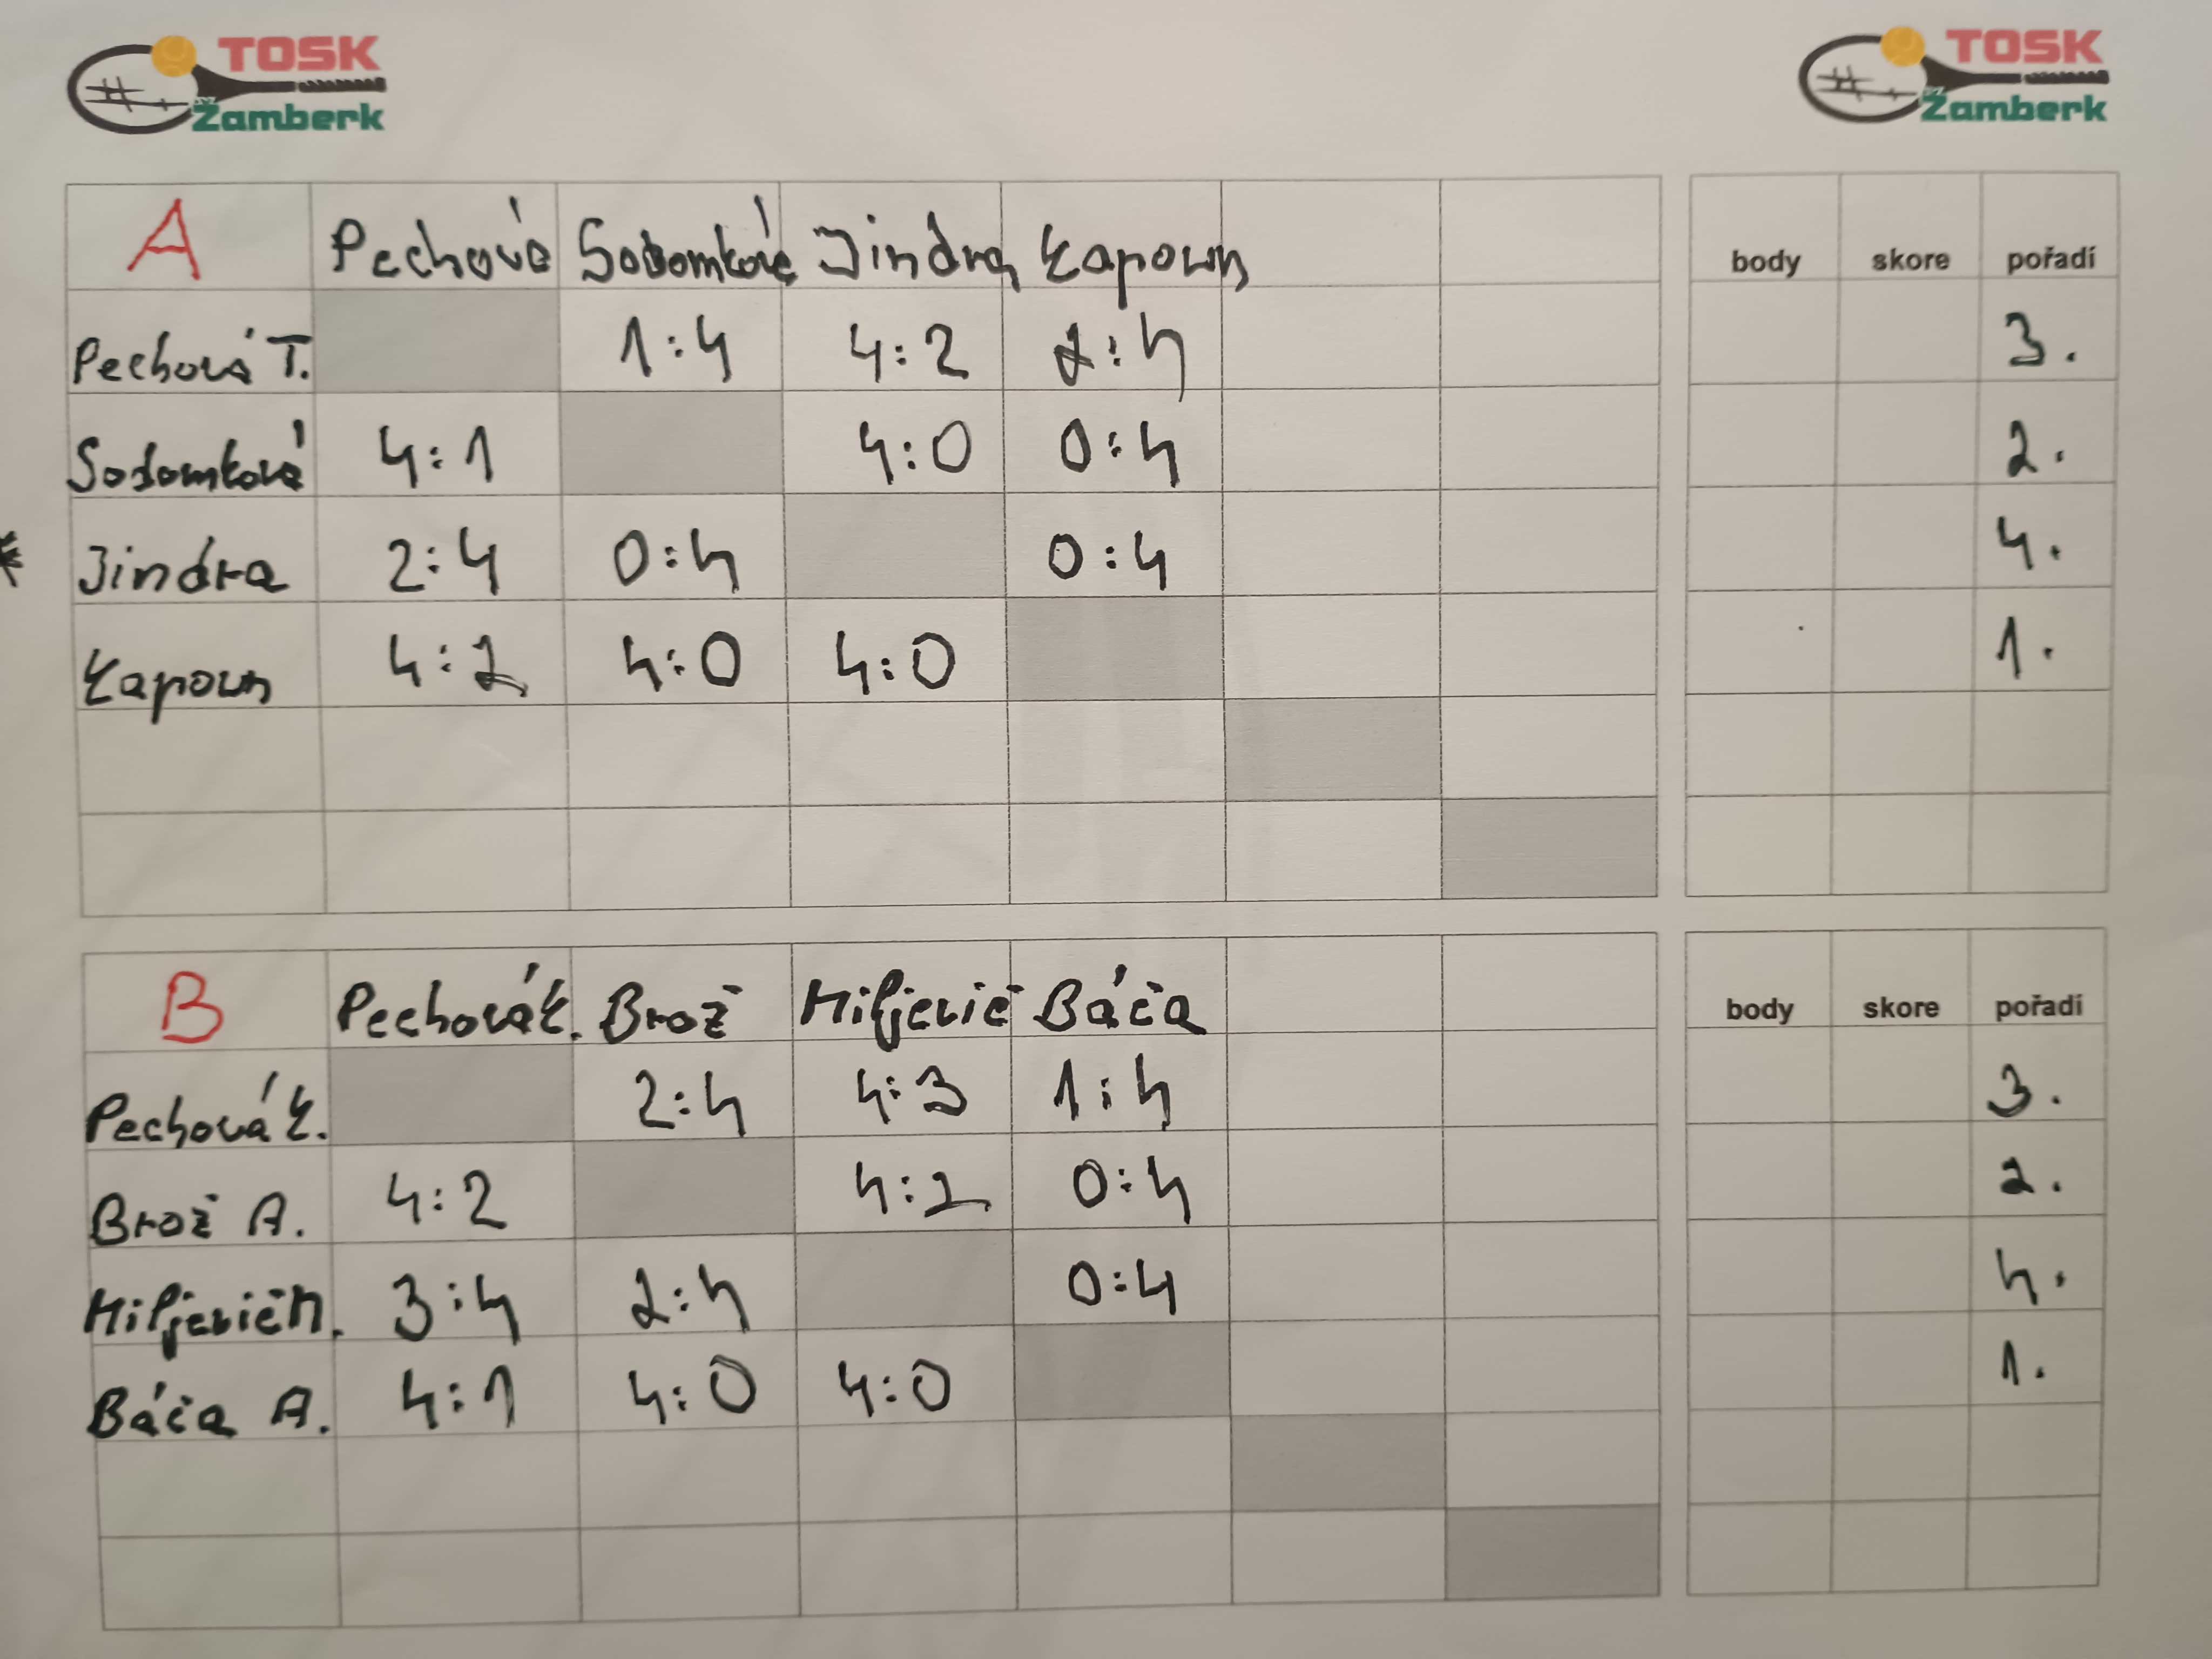 TOSK
Žamberk
TOSK
Žamberk
A Pechová Sodomková Jindra Kapoun body skore pořadí
Pechová T. 1:4 4:2 2:4 3.
Sodomková 4:1 4:0 0:4 2.
Jindra 2:4 0:4 0:4 4.
Kapoun 4:2 4:0 4:0 1.
B Pechová K. Brož Miljevič Báča body skore pořadí
Pechová K. 2:4 4:3 1:4 3.
Brož A. 4:2 4:2 0:4 2.
Miljevič M. 3:4 2:4 0:4 4.
Báča A. 4:1 4:0 4:0 1.